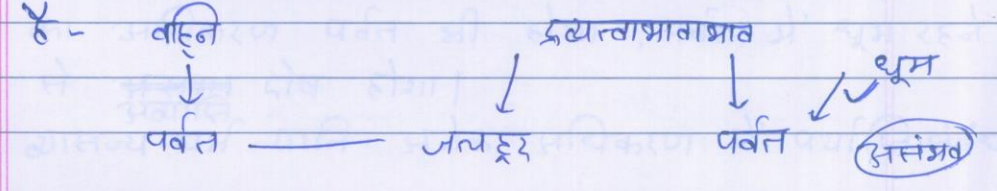 है- वह्नि द्रव्यत्वाभावाभाव
धूम
पर्वत जलह्रद पर्वत असंभव